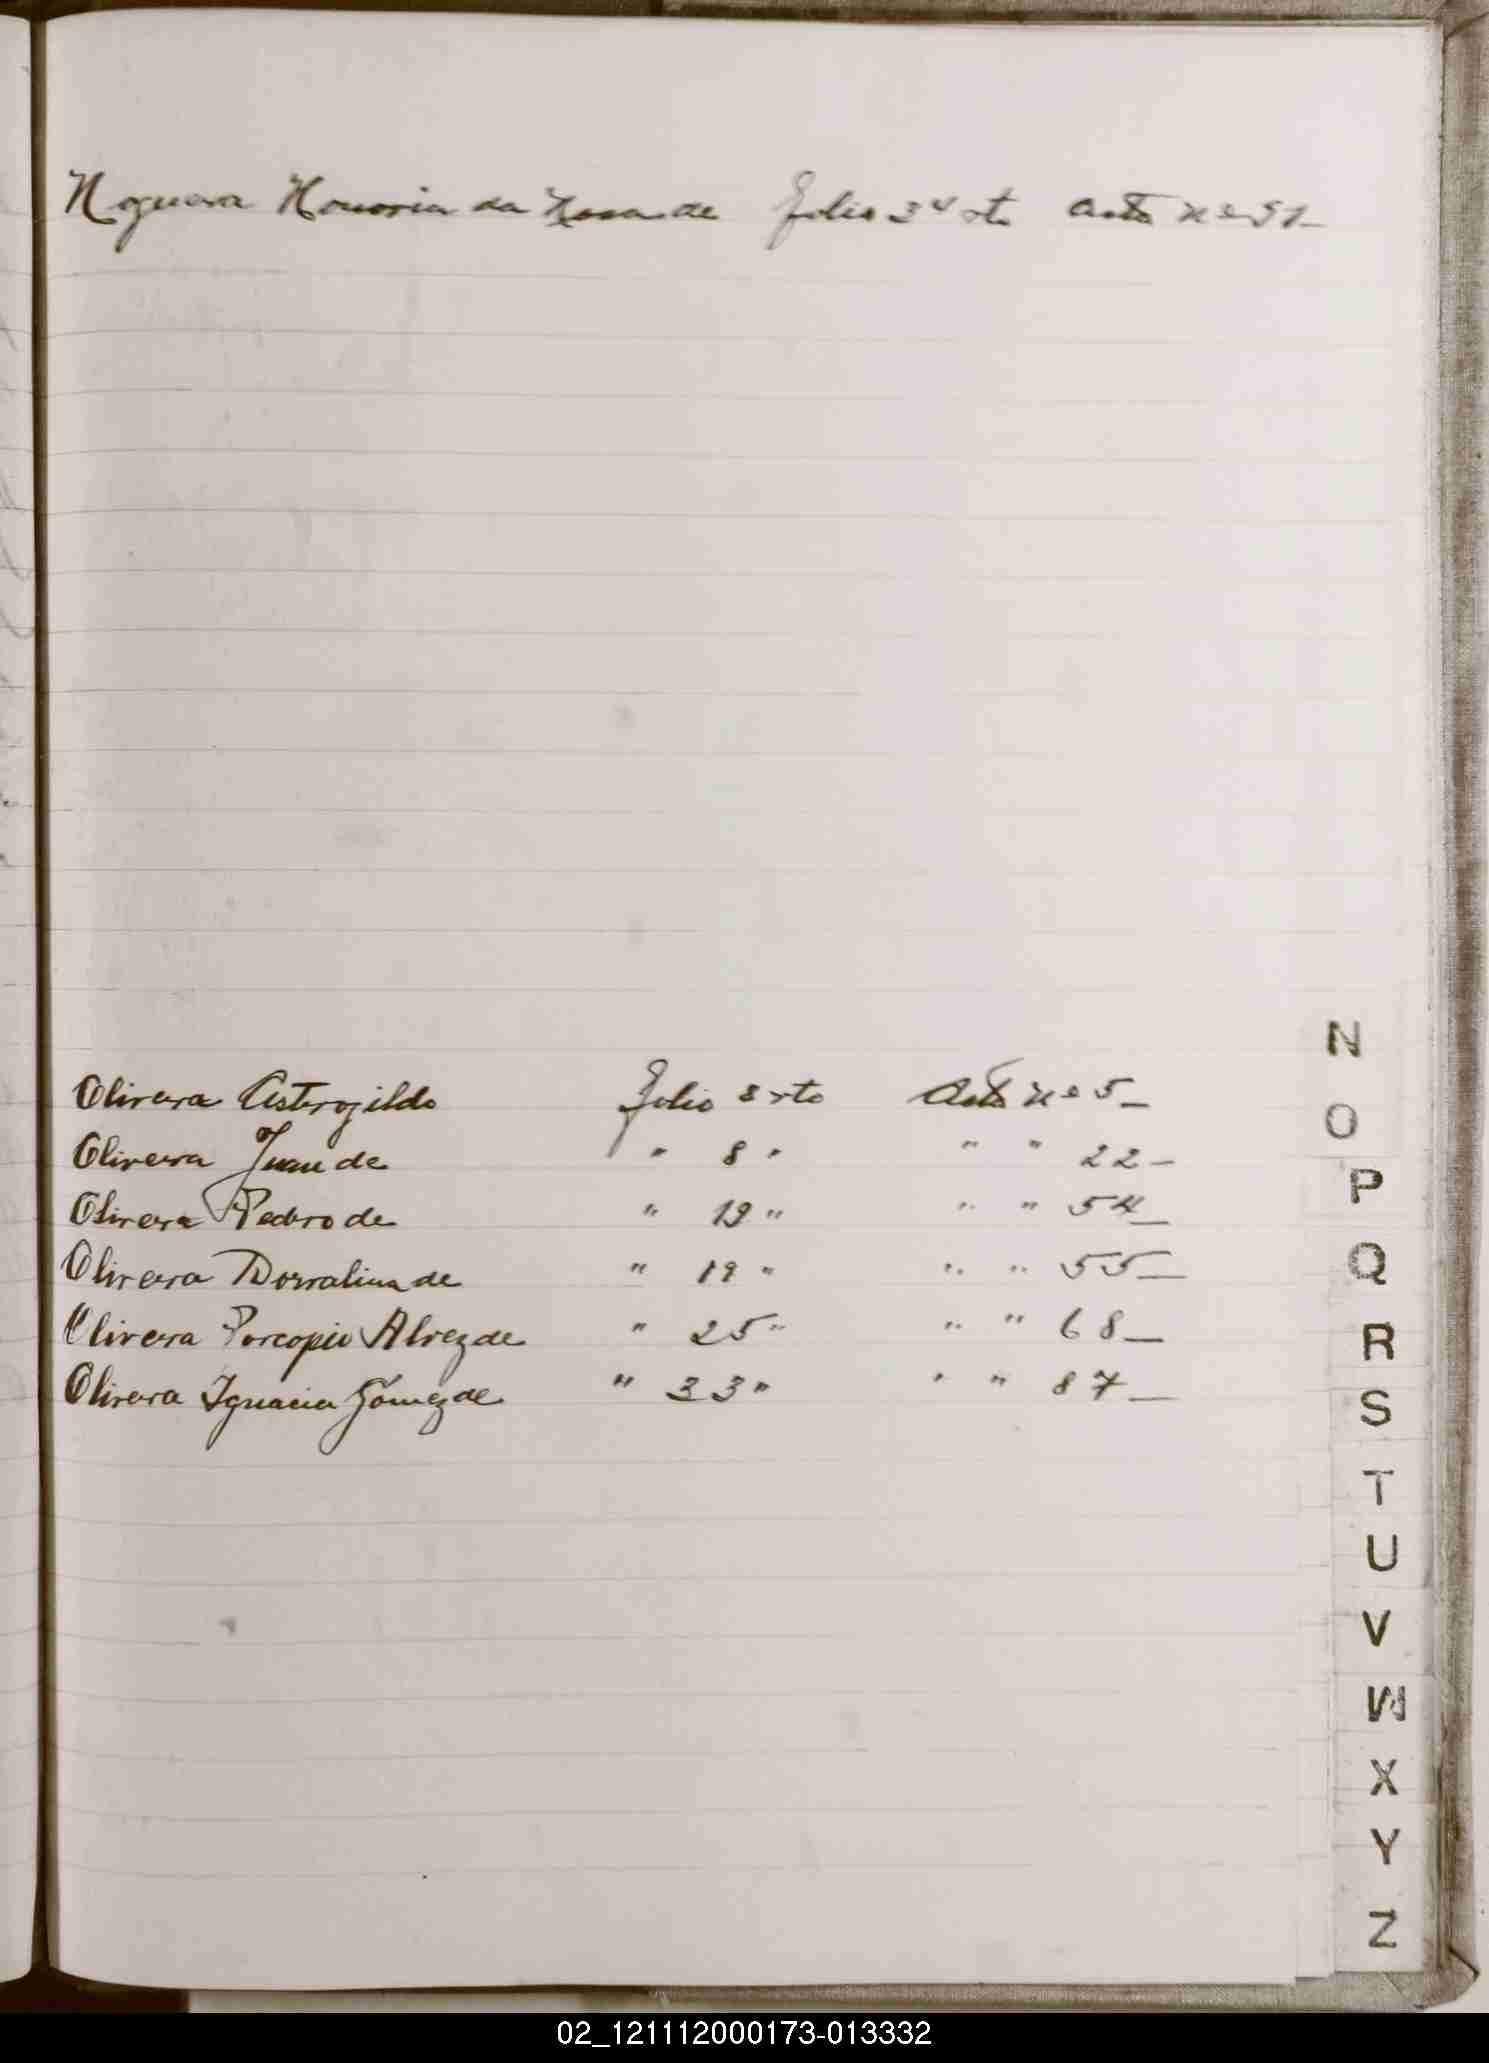 Noguera Honoria da Rosa de folio 34 vto Acta nº 91
Olivera Asterogildo folio 2 vto Acta nº 5
Olivera Juan de " 8 " " " 22
Olivera Pedro de " 19 " " " 54
Olivera Dorralina de " 19 " " " 55
Olivera Porcopio Alvez de " 25 " " " 68
Olivera Ignacia Gómez de " 33 " " " 87
N
O
P
Q
R
S
T
U
V
W
X
Y
Z
02_121112000173-013332